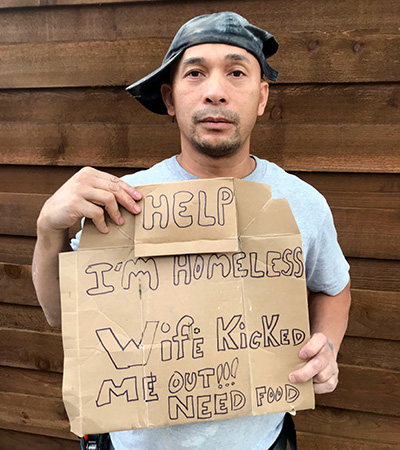 HELP
I'M HOMELESS
Wife KicKeD
Me OUT!!!
NEED FOOD